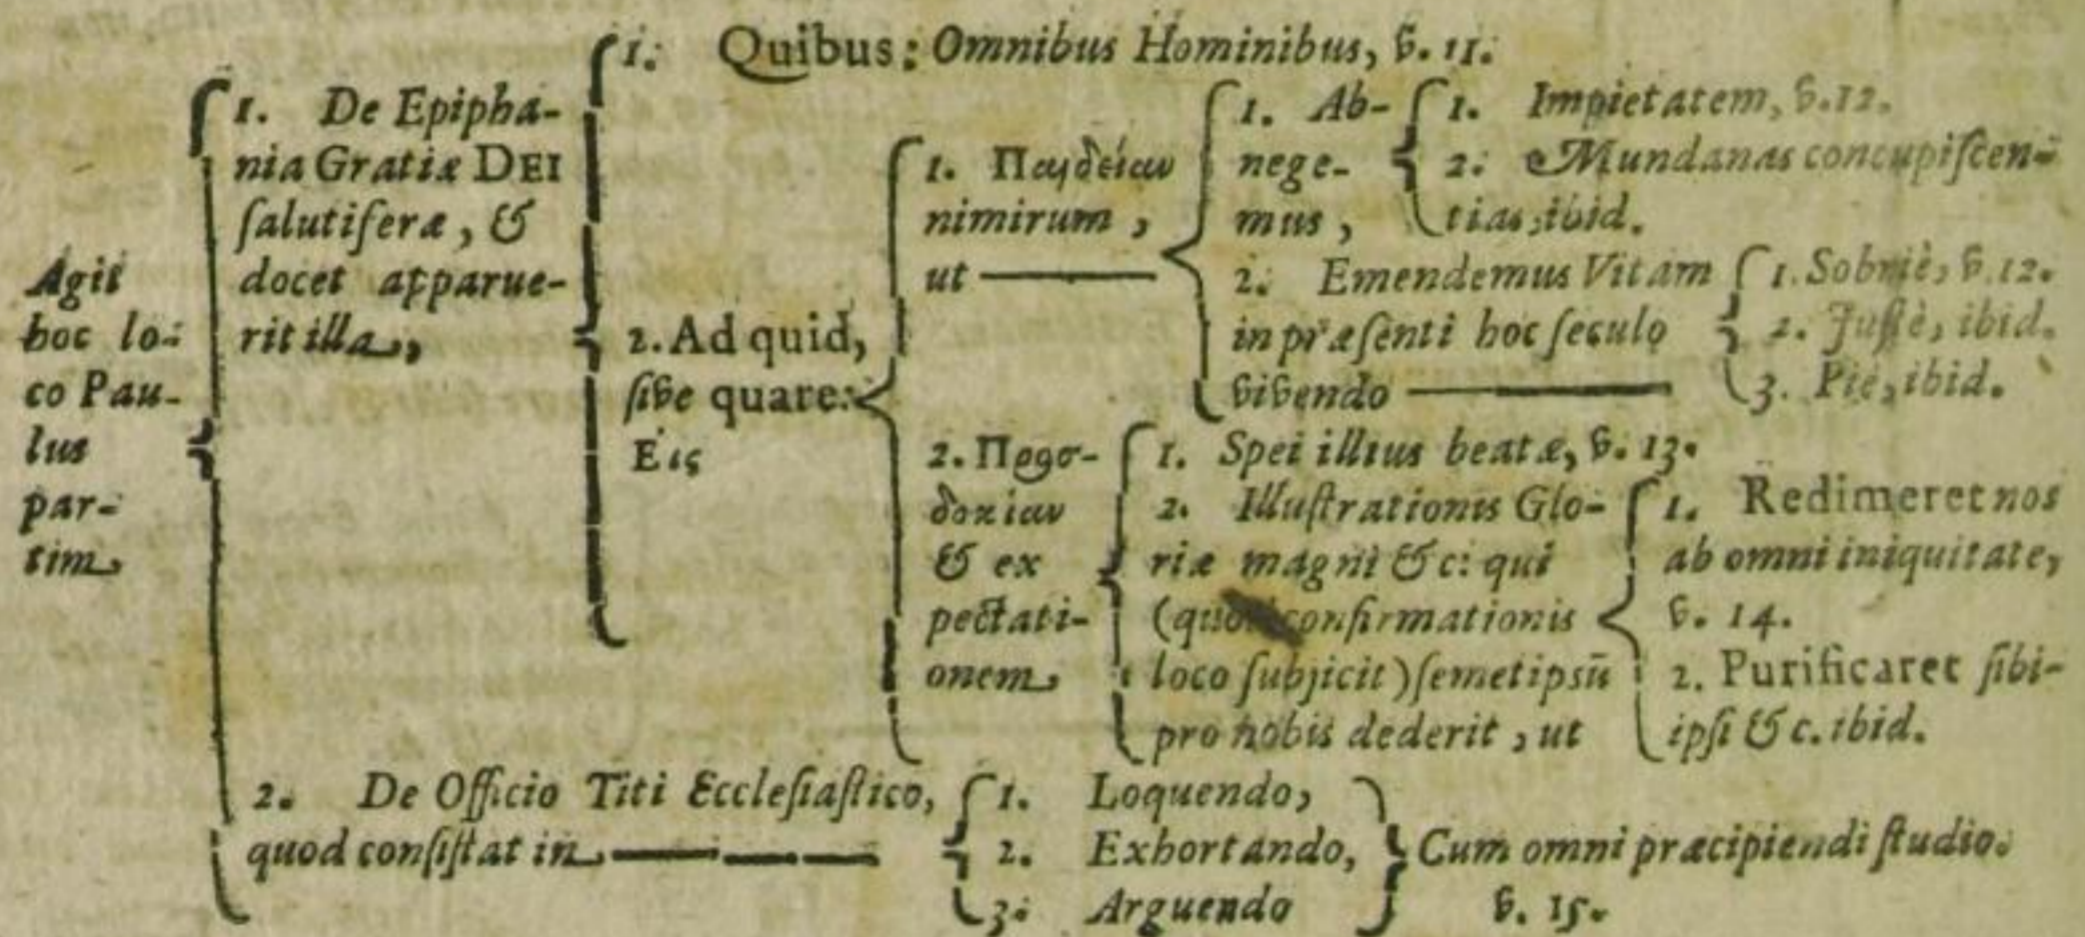 Agit
hoc lo-
co Pau-
lus
par-
tim
1. De Epipha-
nia Gratiæ DEI
ſalutiferæ, &
docet apparue-
rit illa,
1. Quibus: Omnibus Hominibus, v. 11.
2. Ad quid,
ſive quare:
Εἰς
1. Παιδείαν
nimirum,
ut
1. Ab-
nege-
mus,
1. Impietatem, v. 12.
2. Mundanas concupiſcen-
tias, ibid.
2. Emendemus Vitam
in præſenti hoc ſeculo
vivendo
1. Sobriè, v. 12.
2. Juſtè, ibid.
3. Piè, ibid.
2. Προσ-
δοκίαν
& ex
pectati-
onem
1. Spei illius beatæ, v. 13.
2. Illuſtrationis Glo-
riæ magni &c: qui
(confirmationis
loco ſubjicit) ſemetipsū
pro nobis dederit, ut
1. Redimeret nos
ab omni iniquitate,
v. 14.
2. Purificaret ſibi-
ipſi &c. ibid.
2. De Officio Titi Eccleſiaſtico,
quod conſiſtat in
1. Loquendo,
2. Exhortando,
3. Arguendo
Cum omni præcipiendi ſtudio.
v. 15.